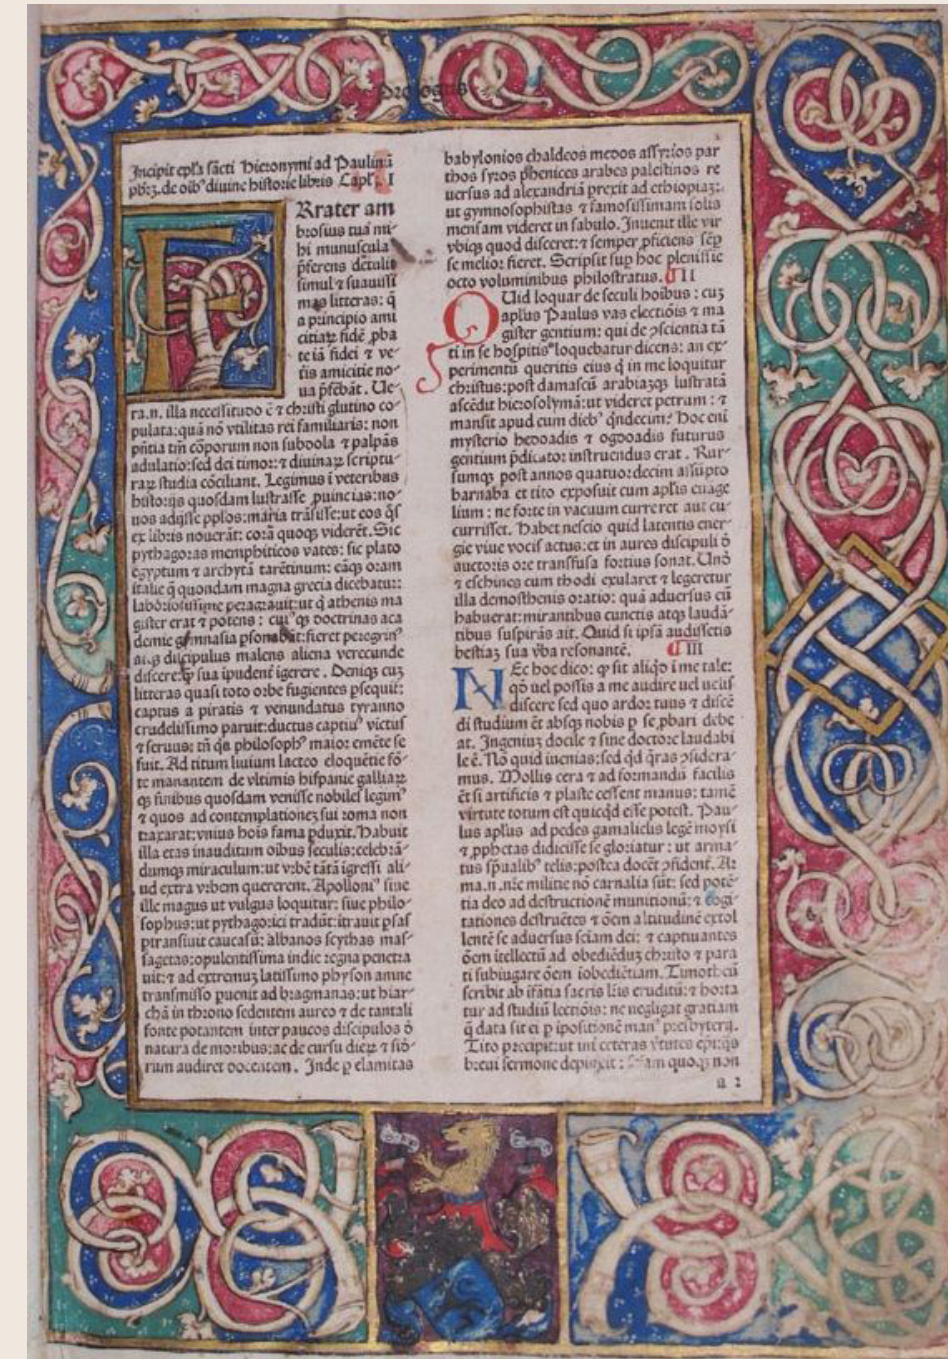 Prologus
Incipit epľa sācti Hieronymi ad Paulinū
pb̄rꝫ. de oīb⁹ diuine historie libris Capľ. I
FRrater am
brosius tua mi-
hi munuscula
p̄ferens detulit
simul ⁊ suauissi
mas litteras: q̄
a principio ami
citiaꝝ fidē ꝓba
te iā fidei ⁊ ve-
tis amicitie no-
ua p̄ferebāt. Ue-
ra.n. illa necessitudo ē ⁊ christi glutino co-
pulata: quā nō vtilitas rei familiaris: non
p̄ntia tm̄ corporum non subdola ⁊ palpās
adulatio: sed dei timor: ⁊ diuinaꝝ scriptu-
raꝝ studia cōciliant. Legimus ī veteribus
historijs quosdam lustrasse ꝓuincias: no-
uos adijsse pplos: maria trāsisse: ut eos q̄s
ex libris nouerāt: corā quoqꝫ viderēt. Sic
pythagoras memphiticos vates: sic plato
egyptum ⁊ archytā tarētinum: eāqꝫ oram
italie q̄ quondam magna grecia dicebatur:
laboriosissime peragrauit: ut q̄ athenis ma
gister erat ⁊ potens: cui⁹qꝫ doctrinas aca
demie gymnasia ꝑsonabāt: fieret peregrin⁹
atqꝫ discipulus malens aliena verecunde
discere: qꝫ sua īpudent̄ īgerere. Deniqꝫ cuꝫ
litteras quasi toto orbe fugientes ꝑsequit̄:
captus a piratis ⁊ venundatus tyranno
crudelissimo paruit: ductus captiu⁹ victus
⁊ seruus: tn̄ qꝛ philosoph⁹ maior emēte se
fuit. Ad titum liuium lacteo eloquētie fō-
te manantem de vltimis hispanie galliaꝝ
qꝫ finibus quosdam venisse nobiles legim⁹
⁊ quos ad contemplationeꝫ sui roma non
traxarat: vnius hoīs fama ꝑduxit. Habuit
illa etas inauditum oībus seculis: celebrā-
dumqꝫ miraculum: ut vrbē tātā īgressi ali-
ud extra vrbem quererent. Apolloni⁹ siue
ille magus ut vulgus loquitur: siue philo-
sophus: ut pythagorici tradūt: ītrauit ꝑsas
ꝑtransiuit caucasū: albanos scythas mas-
sagetas: opulentissima indie regna penetra
uit: ⁊ ad extremuꝫ latissimo physon amne
transmisso ꝑuenit ad bragmanas: ut hiar-
chā in throno sedentem aureo ⁊ de tantali
fonte potantem inter paucos discipulos d̄
natura de moribus: ac de cursu dieꝝ ⁊ siđ-
rum audiret docentem. Inde ꝑ elamitas
babylonios chaldeos medos assyrios par
thos syros phenices arabes palestinos re
uersus ad alexandriā prexit ad ethiopiaꝫ:
ut gymnosophistas ⁊ famosissimam solis
mensam videret in sabulo. Inuenit ille vir
vbiqꝫ quod disceret: ⁊ semper ꝓficiens sēꝑ
se melior fieret. Scripsit suꝑ hoc plenissie
octo voluminibus philostratus. II
QUid loquar de seculi hoībus: cuꝫ
aplus Paulus vas electiōis ⁊ ma
gister gentium: qui de ↄscientia tā
ti in se hospitis loquebatur dicens: an ex-
perimentū queritis eius q̄ in me loquitur
christus: post damascū arabiaꝫqꝫ lustratā
ascēdit hierosolymā: ut videret petrum: ⁊
mansit apud eum dieb⁹ q̄ndecim: Hoc eni
mysterio hebdoadis ⁊ ogdoadis futurus
gentium p̄dicator instruendus erat. Rur-
sumqꝫ post annos quatuordecim assūpto
barnaba et tito exposuit cum aplis euāge
lium: ne forte in vacuum curreret aut cu-
currisset. Habet nescio quid latentis ener-
gie viue vocis actus: et in aures discipuli d̄
auctoris ore transfusa fortius sonat. Unđ
⁊ eschines cum rhodi exularet ⁊ legeretur
illa demosthenis oratio: quā aduersus eū
habuerat: mirantibus cunctis atqꝫ laudā-
tibus suspirās ait. Quid si ipsā audissetis
bestiaꝫ sua v̄ba resonantē. III
NEc hoc dico: qꝙ sit aliqđ ī me tale:
qđ uel possis a me audire uel uelis
discere sed quo ardor tuus ⁊ discē
di studium ēt absqꝫ nobis ꝑ se ꝓbari debe
at. Ingeniuꝫ docile ⁊ sine doctore laudabi
le ē. Nō quid inuenias: sed qđ q̄ras ↄsidera-
mus. Mollis cera ⁊ ad formandū facilis
ēt si artificis ⁊ plaste cessent manus: tamē
virtute totum est quicqđ esse potest. Pau-
lus aplus ad pedes gamalielis legē moysi
⁊ ꝓphetas didicisse se gloriatur: ut arma-
tus sp̄ualib⁹ telis: postea docēt ↄfident̄. Ar
ma.n. nr̄e militie nō carnalia sūt: sed potē-
tia deo ad destructionē munitionū: ⁊ cogi-
tationes destruētes ⁊ ōem altitudinē extol
lentē se aduersus sciam dei: ⁊ captiuantes
ōem ītellectū ad obediēduꝫ christo ⁊ para
ti subiugare ōem īobediētiam. Timotheū
scribit ab īfātia sacris lr̄is eruditū: ⁊ horta
tur ad studiū lectiōis: ne negligat gratiam
q̄ data sit ei ꝑ īpositionē man⁹ presbyterij.
Tito precipit: ut int̄ ceteras v̄tutes ep̄i: q̄s
breui sermone depinxit: quoqꝫ non
a 2